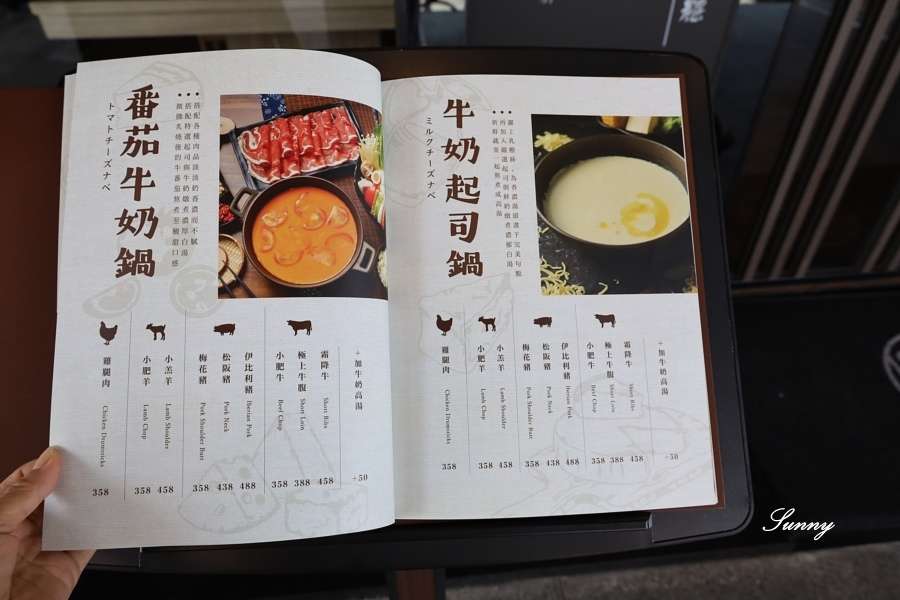 番茄牛奶鍋
トマトチーズナベ
搭配各種肉品淡淡奶香濃而不膩
雞腿肉
Chicken Drumsticks
358
小肥羊
Lamb Chop
358
小羔羊
Lamb Shoulder
458
梅花豬
Pork Shoulder Butt
358
松阪豬
Pork Neck
438
伊比利豬
Iberian Pork
488
小肥牛
Beef Chop
358
極上牛腹
Short Loin
388
霜降牛
Short Ribs
458
+加牛奶高湯
+50
牛奶起司鍋
ミルクチーズナベ
雞腿肉
Chicken Drumsticks
358
小肥羊
Lamb Chop
358
小羔羊
Lamb Shoulder
458
梅花豬
Pork Shoulder Butt
358
松阪豬
Pork Neck
438
伊比利豬
Iberian Pork
488
小肥牛
Beef Chop
358
極上牛腹
Short Loin
388
霜降牛
Short Ribs
458
+加牛奶高湯
+50
Sunny